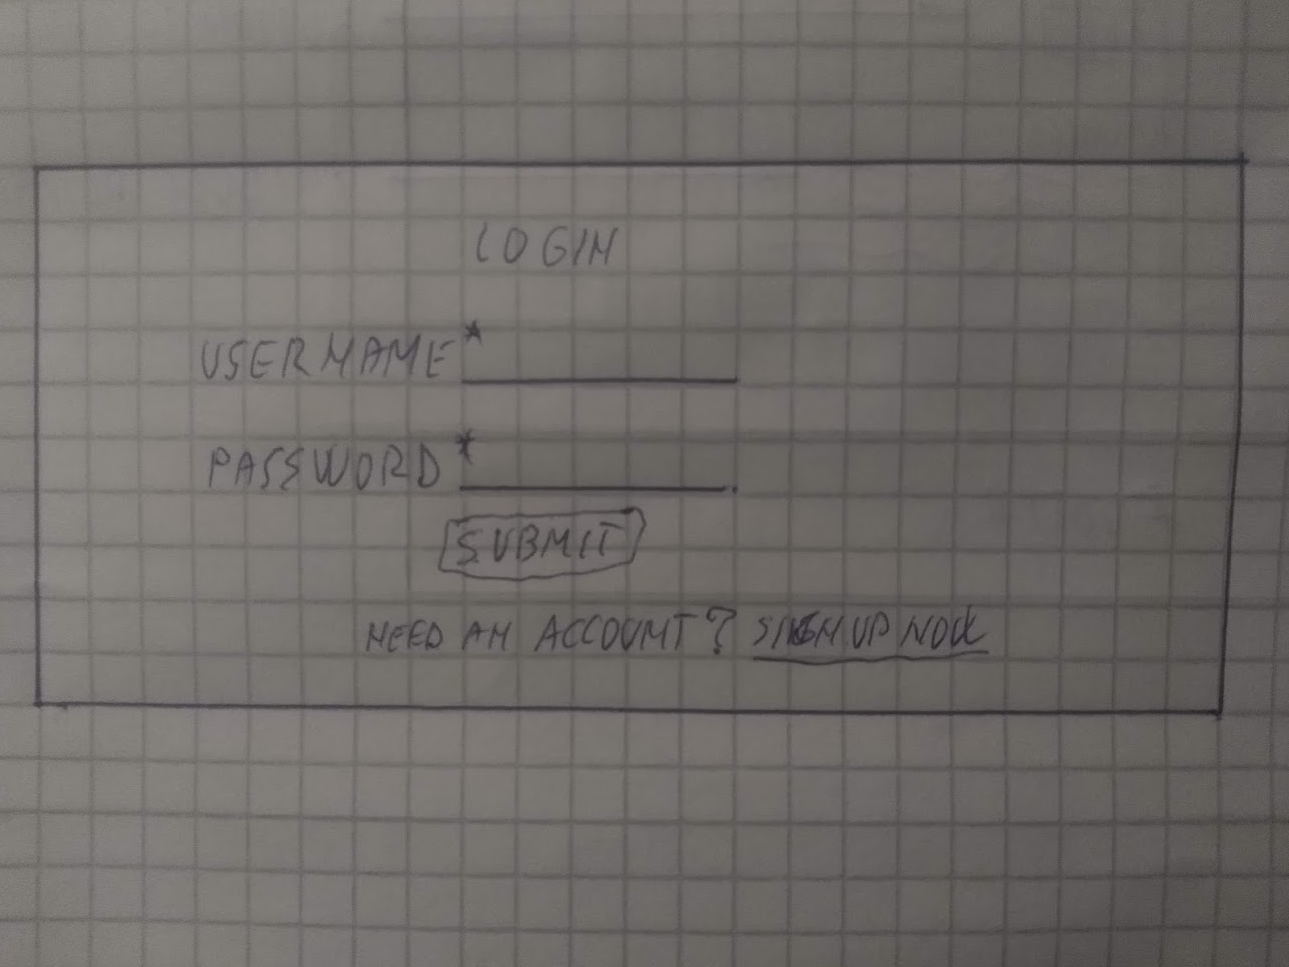 LOGIN
USERNAME*
PASSWORD*
SUBMIT
NEED AN ACCOUNT? SIGN UP NOW